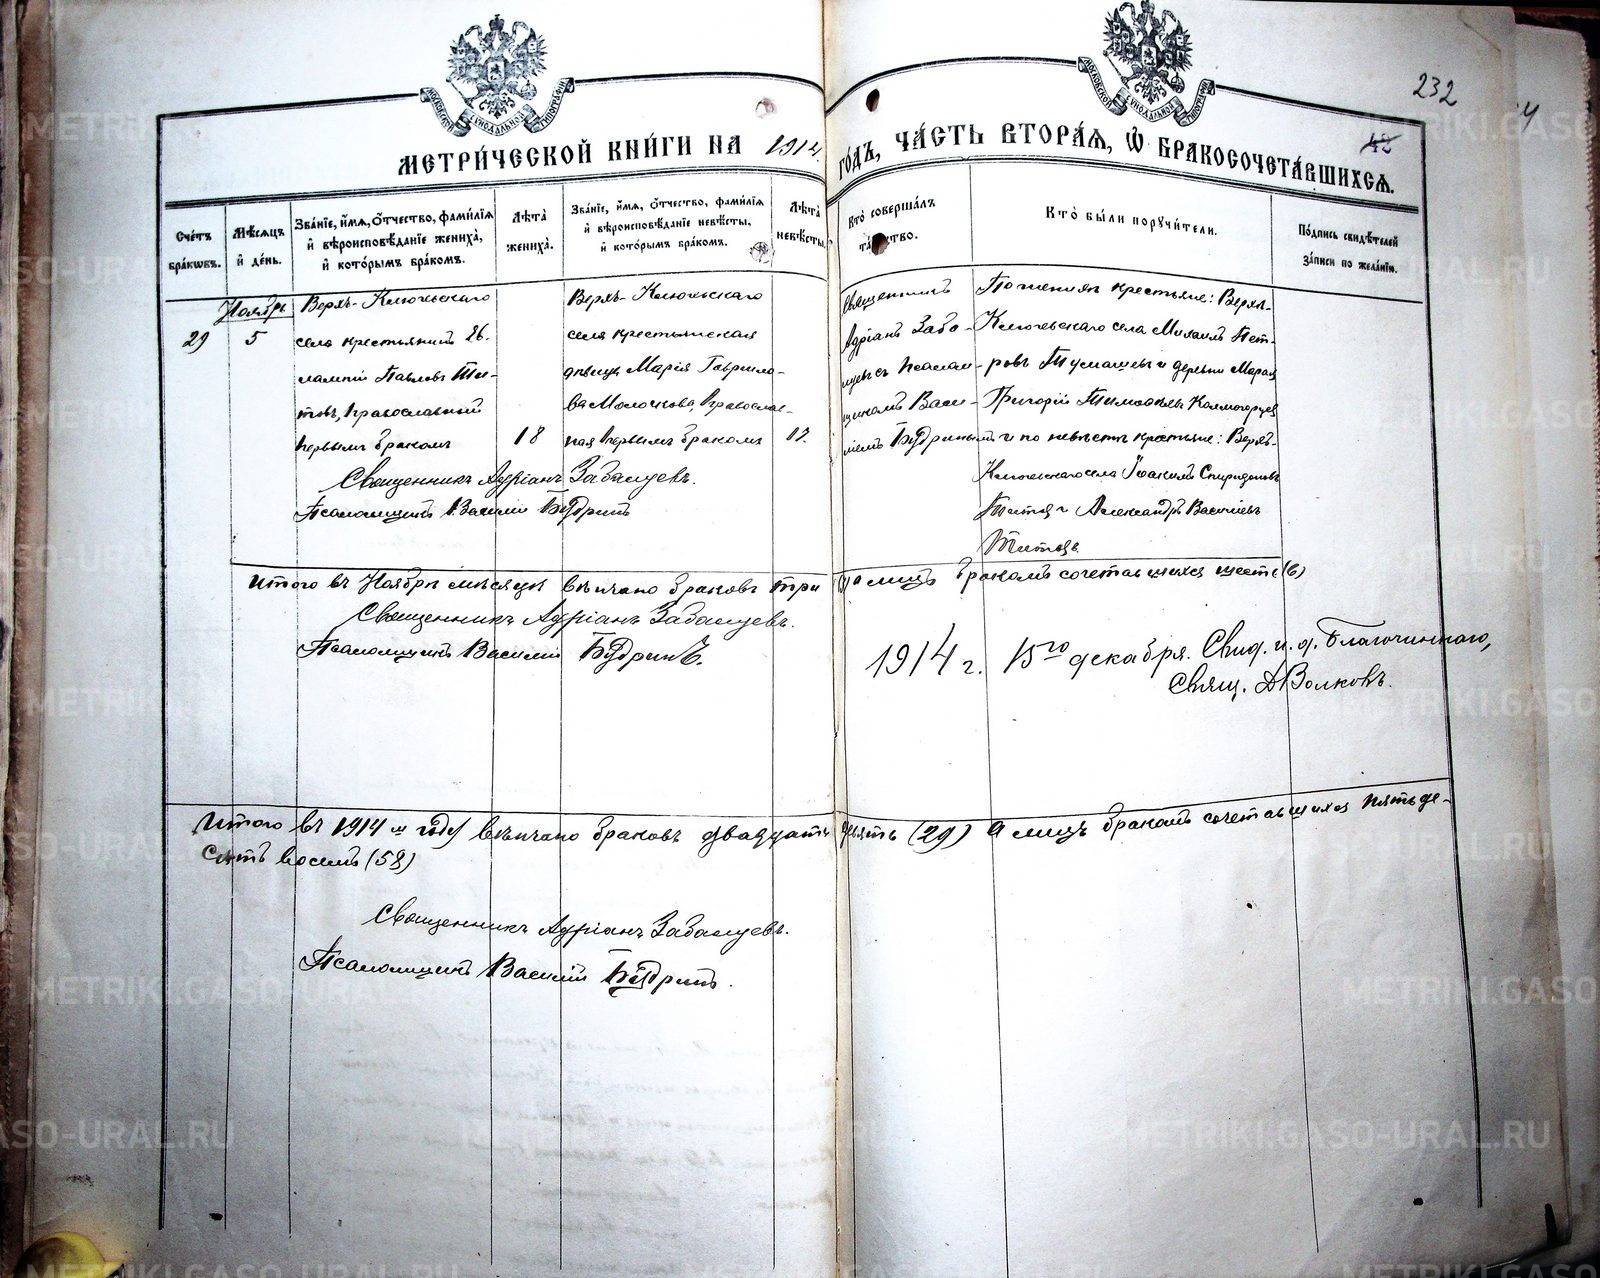 232
48
МОСКОВСКОЙ СѴНОДАЛЬНОЙ ТИПОГРАФІИ
МОСКОВСКОЙ СѴНОДАЛЬНОЙ ТИПОГРАФІИ
МЕТРИ́ЧЕСКОЙ КНИ́ГИ НА 1914. ГО́ДЪ, ЧА́СТЬ ВТОРА́Ѧ, Ѡ҆ БРАКОСОЧЕТА́ВШИХСѦ.
Сче́тъ
бра́кѡвъ.
Мѣ́сѧцъ
и҆ де́нь.
Зва́нїе, и҆́мѧ, ѻ҆́тчество, фами́лїѧ
и҆ вѣроисповѣ́данїе жениха̀,
и҆ кото́рымъ бра́комъ.
Лѣ́та̀
жениха̀.
Зва́нїе, и҆́мѧ, ѻ҆́тчество, фами́лїѧ
и҆ вѣроисповѣ́данїе невѣ́сты,
и҆ кото́рымъ бра́комъ.
Лѣ́та̀
невѣ́сты.
Кто̀ соверша́лъ
та́инство.
Кто̀ бы́ли порꙋчи́тели.
По́дпись свидѣ́телей
за́писи по жела́нїю.
Ноябрь
29
5
Верхъ-Ключевскаго
села крестьянинъ Ев-
лампій Павловъ Ти-
товъ, православный
первымъ бракомъ
18
Верхъ-Ключевскаго
села крестьянская
дѣвица Марія Гаврило-
ва Молочкова, православ-
ная первымъ бракомъ
17.
Священникъ
Адріанъ Заба-
луевъ съ псалом-
щикомъ Васи-
ліемъ Будринымъ
По женихѣ крестьяне: Верхъ-
Ключевскаго села Михаилъ Пет-
ровъ Тумашевъ и деревни Мараи
Григорій Тимофѣевъ Колмогорцевъ
и по невѣстѣ крестьяне: Верхъ-
Ключевскаго села Іоакимъ Спиридоновъ
Титовъ и Александръ Васильевъ
Титовъ.
Священникъ Адріанъ Забалуевъ.
Псаломщикъ Василій Будринъ
Итого въ Ноябрѣ мѣсяцѣ вѣнчано браковъ три (3) а лицъ бракомъ сочетавшихся шесть (6)
Священникъ Адріанъ Забалуевъ.
Псаломщикъ Василій Будринъ.
1914 г. 15го декабря. Свид. и. д. Благочиннаго,
Свящ. Д Волковъ.
Итого въ 1914 м году вѣнчано браковъ двадцать девять (29) а лицъ бракомъ сочетавшихся пятьде-
сятъ восемь (58)
Священникъ Адріанъ Забалуевъ.
Псаломщикъ Василій Будринъ.
METRIKI.GASO-URAL.RU